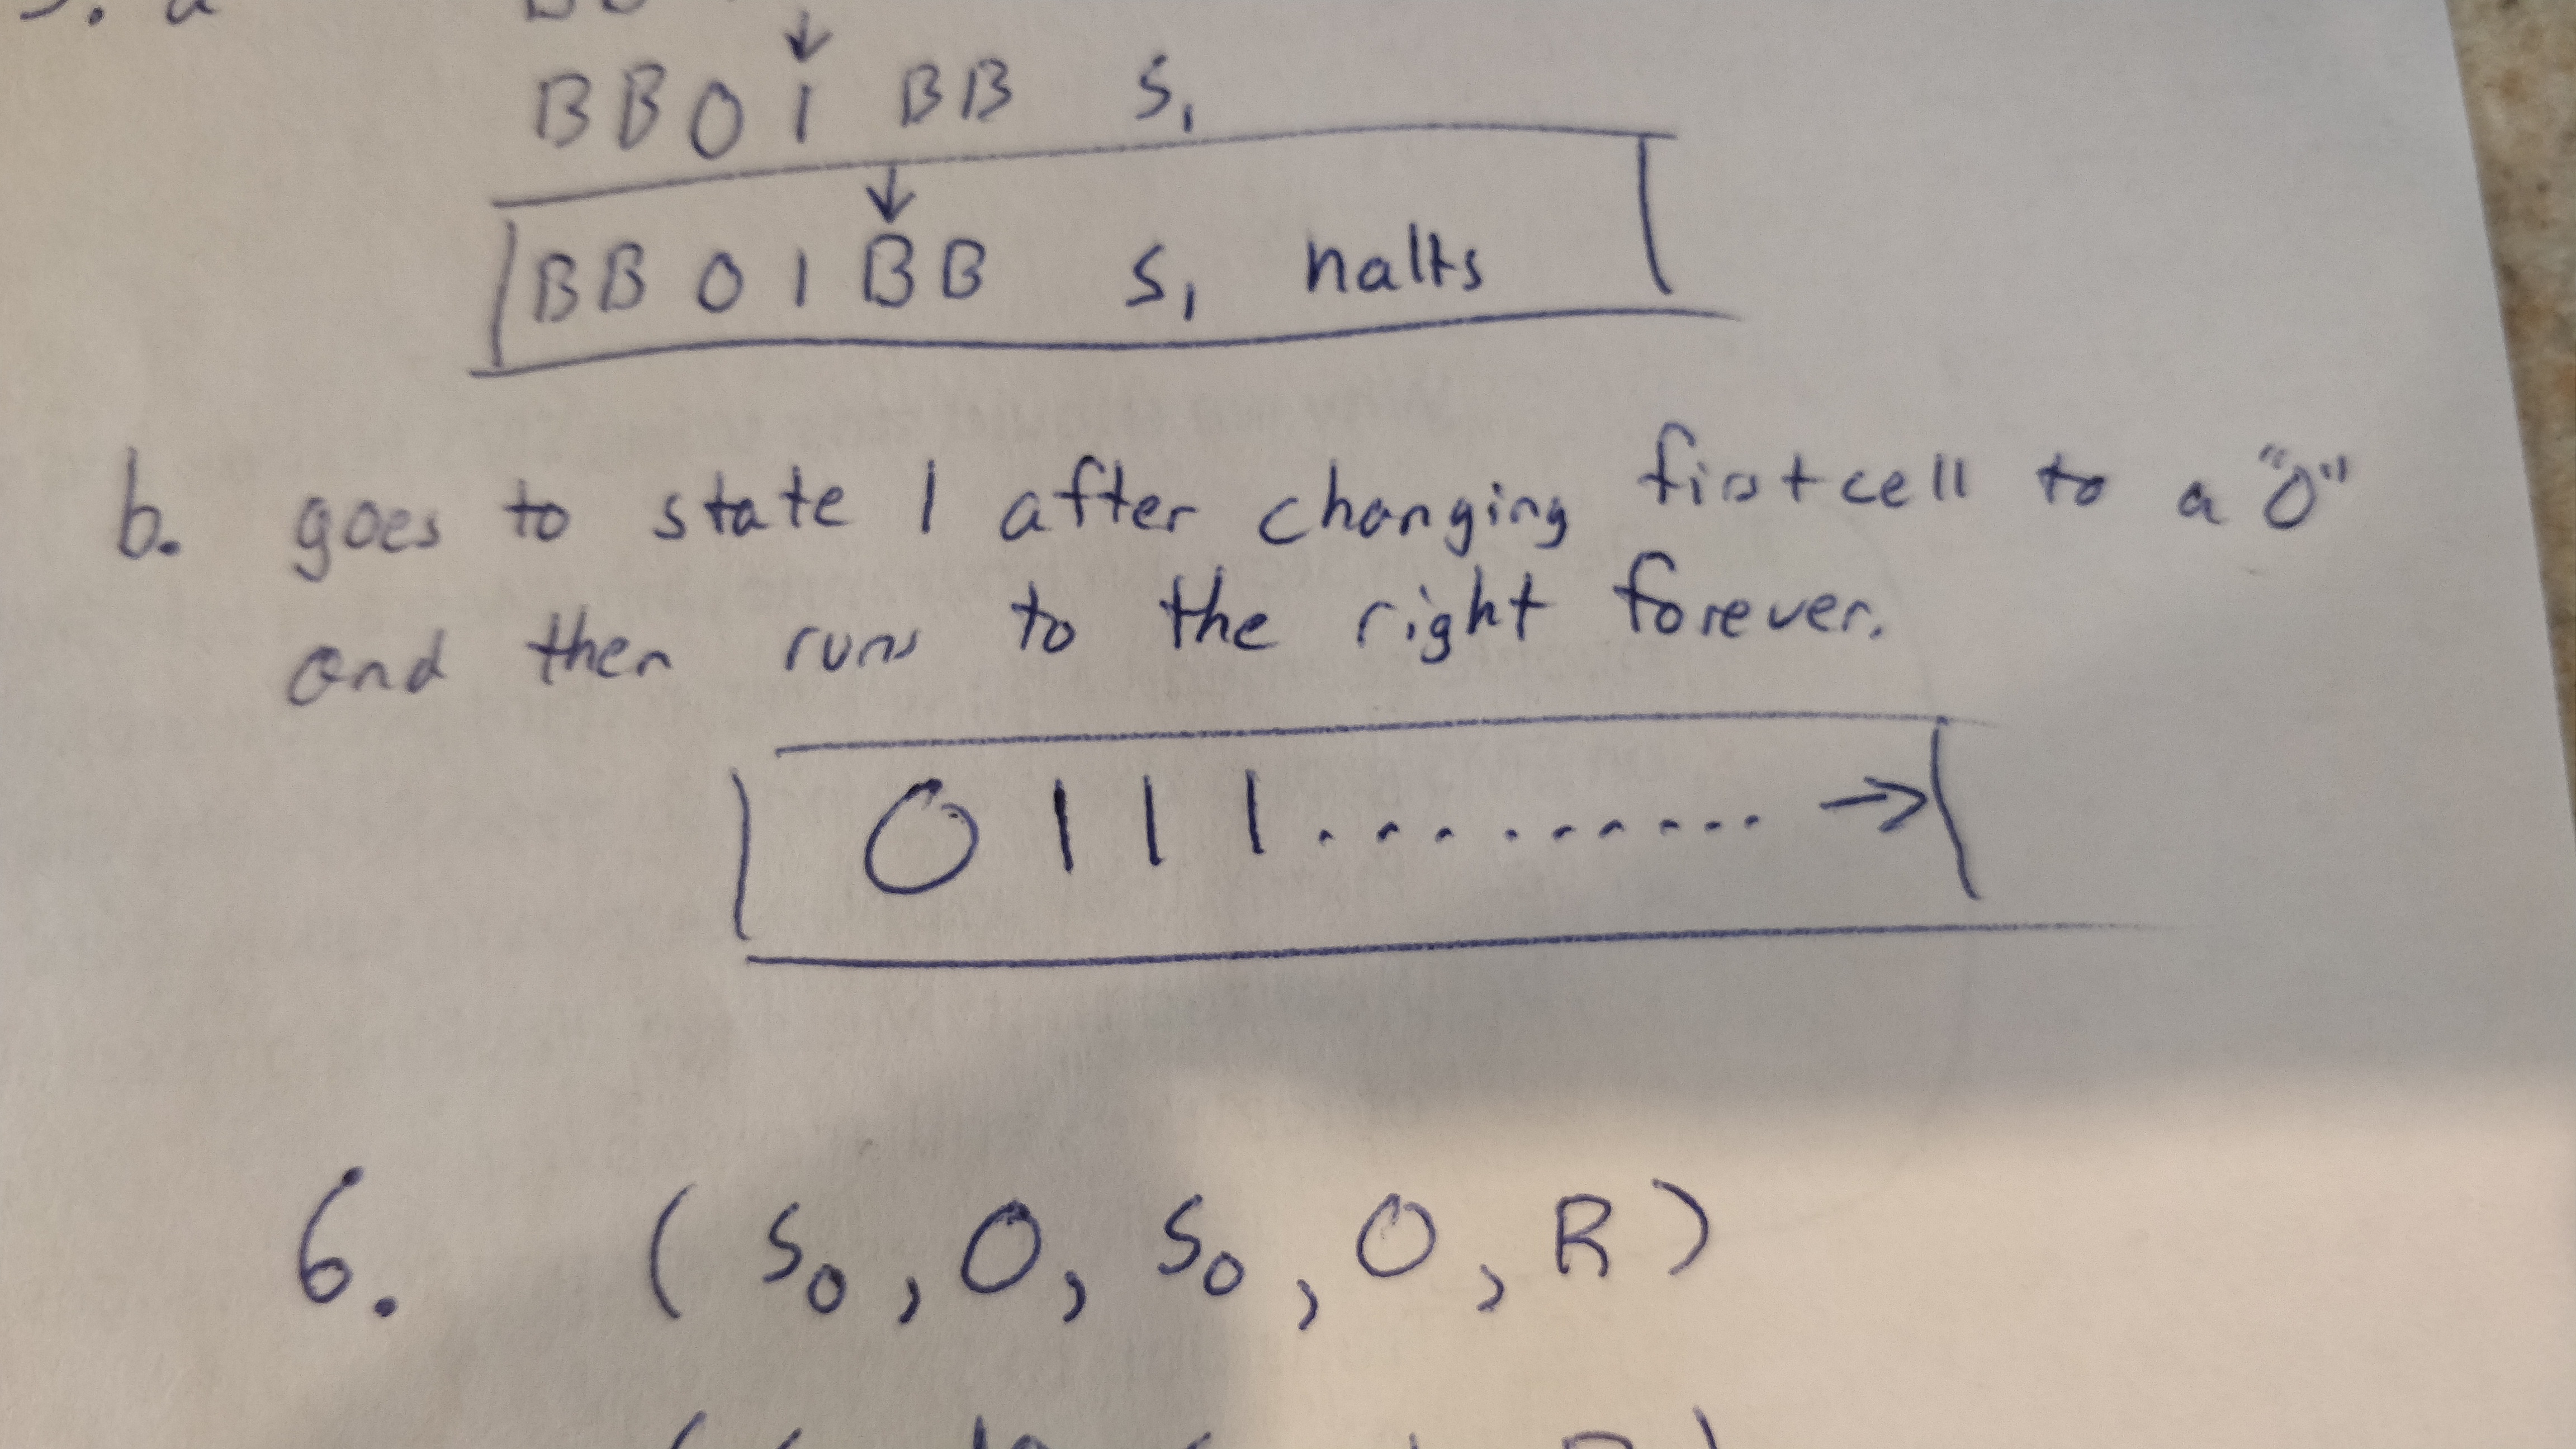 BB01BB S₁
BB01BB S₁ halts
b. goes to state 1 after changing first cell to a "0"
and then runs to the right forever.
0111.......... →
6. (S₀, 0, S₀, 0, R)